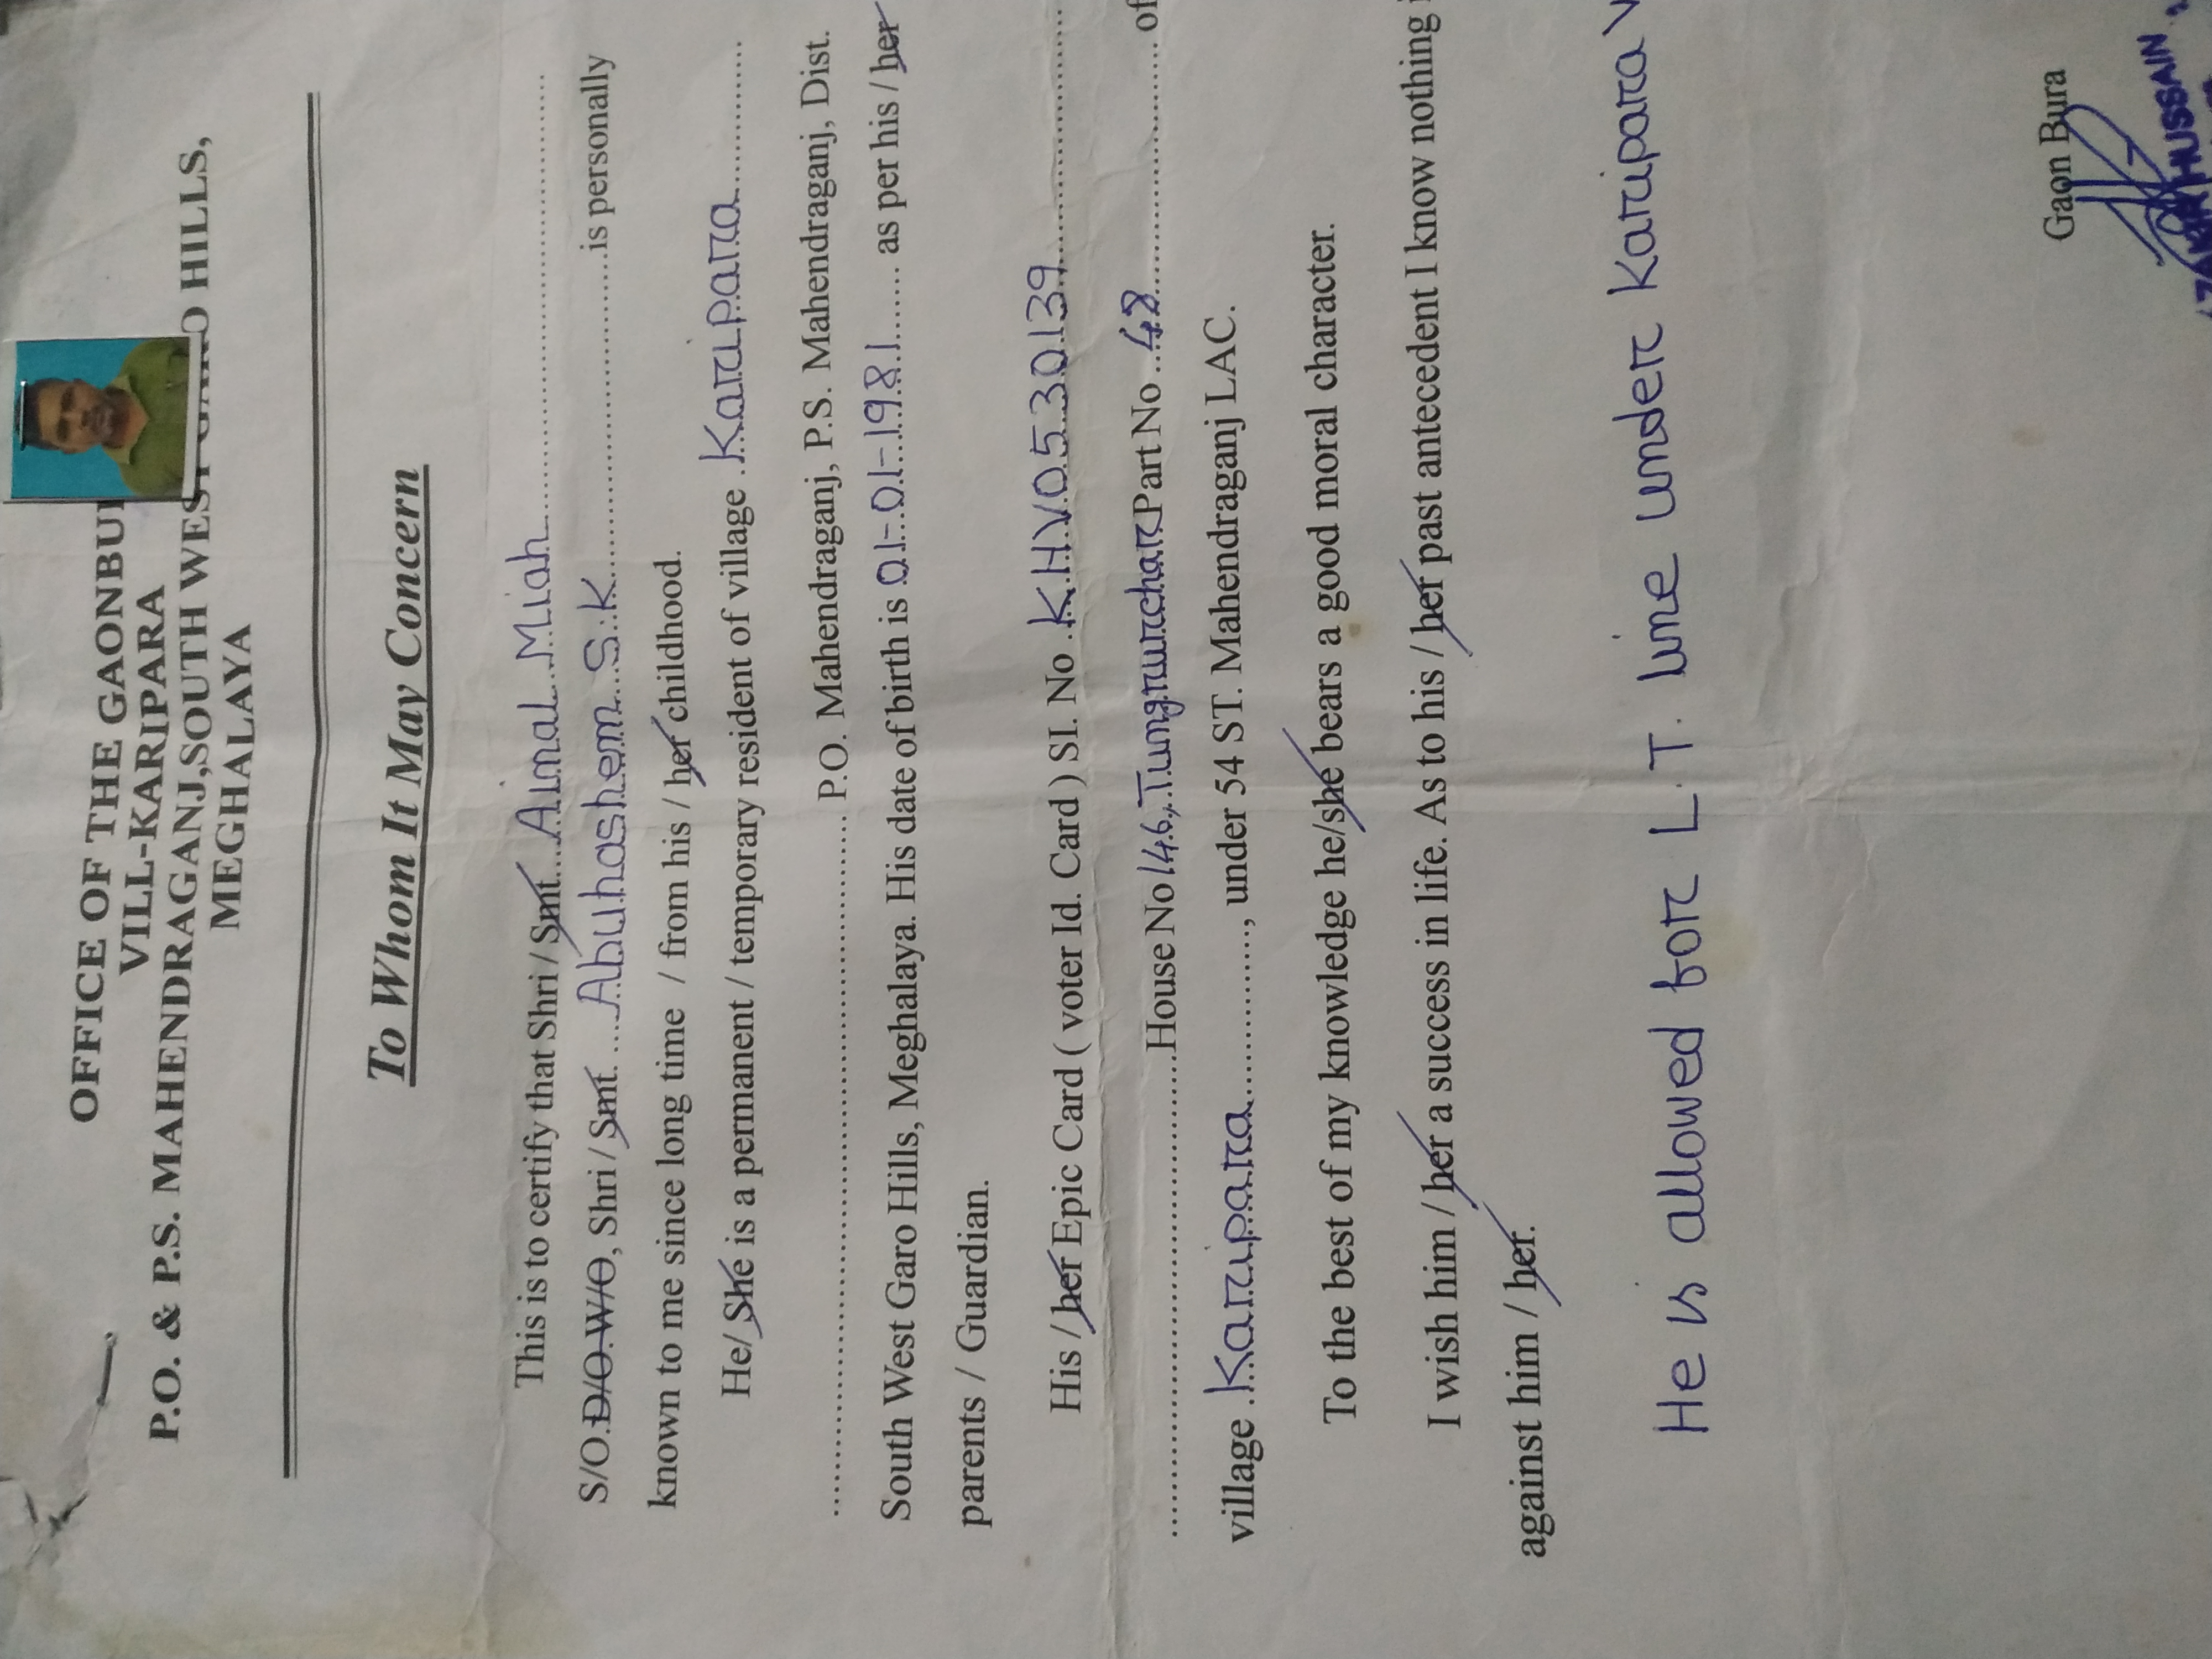 OFFICE OF THE GAONBU
VILL-KARIPARA
P.O. & P.S. MAHENDRAGANJ,SOUTH WEST GARO HILLS,
MEGHALAYA
To Whom It May Concern
This is to certify that Shri / Smt. Ainal Miah
S/O.D/O.W/O, Shri / Smt. Abuhashem S.K is personally
known to me since long time / from his / her childhood.
He/ She is a permanent / temporary resident of village Karipara
P.O. Mahendraganj, P.S. Mahendraganj, Dist.
South West Garo Hills, Meghalaya. His date of birth is 01-01-1981 as per his / her
parents / Guardian.
His / her Epic Card ( voter Id. Card ) SI. No. KHV0530139
House No 146, Tungrurchar Part No. 48 of
village Karipara, under 54 ST. Mahendraganj LAC.
To the best of my knowledge he/she bears a good moral character.
I wish him / her a success in life. As to his / her past antecedent I know nothing
against him / her.
He is allowed for L.T. line under Karipara V
Gaon Bura
HUSSAIN